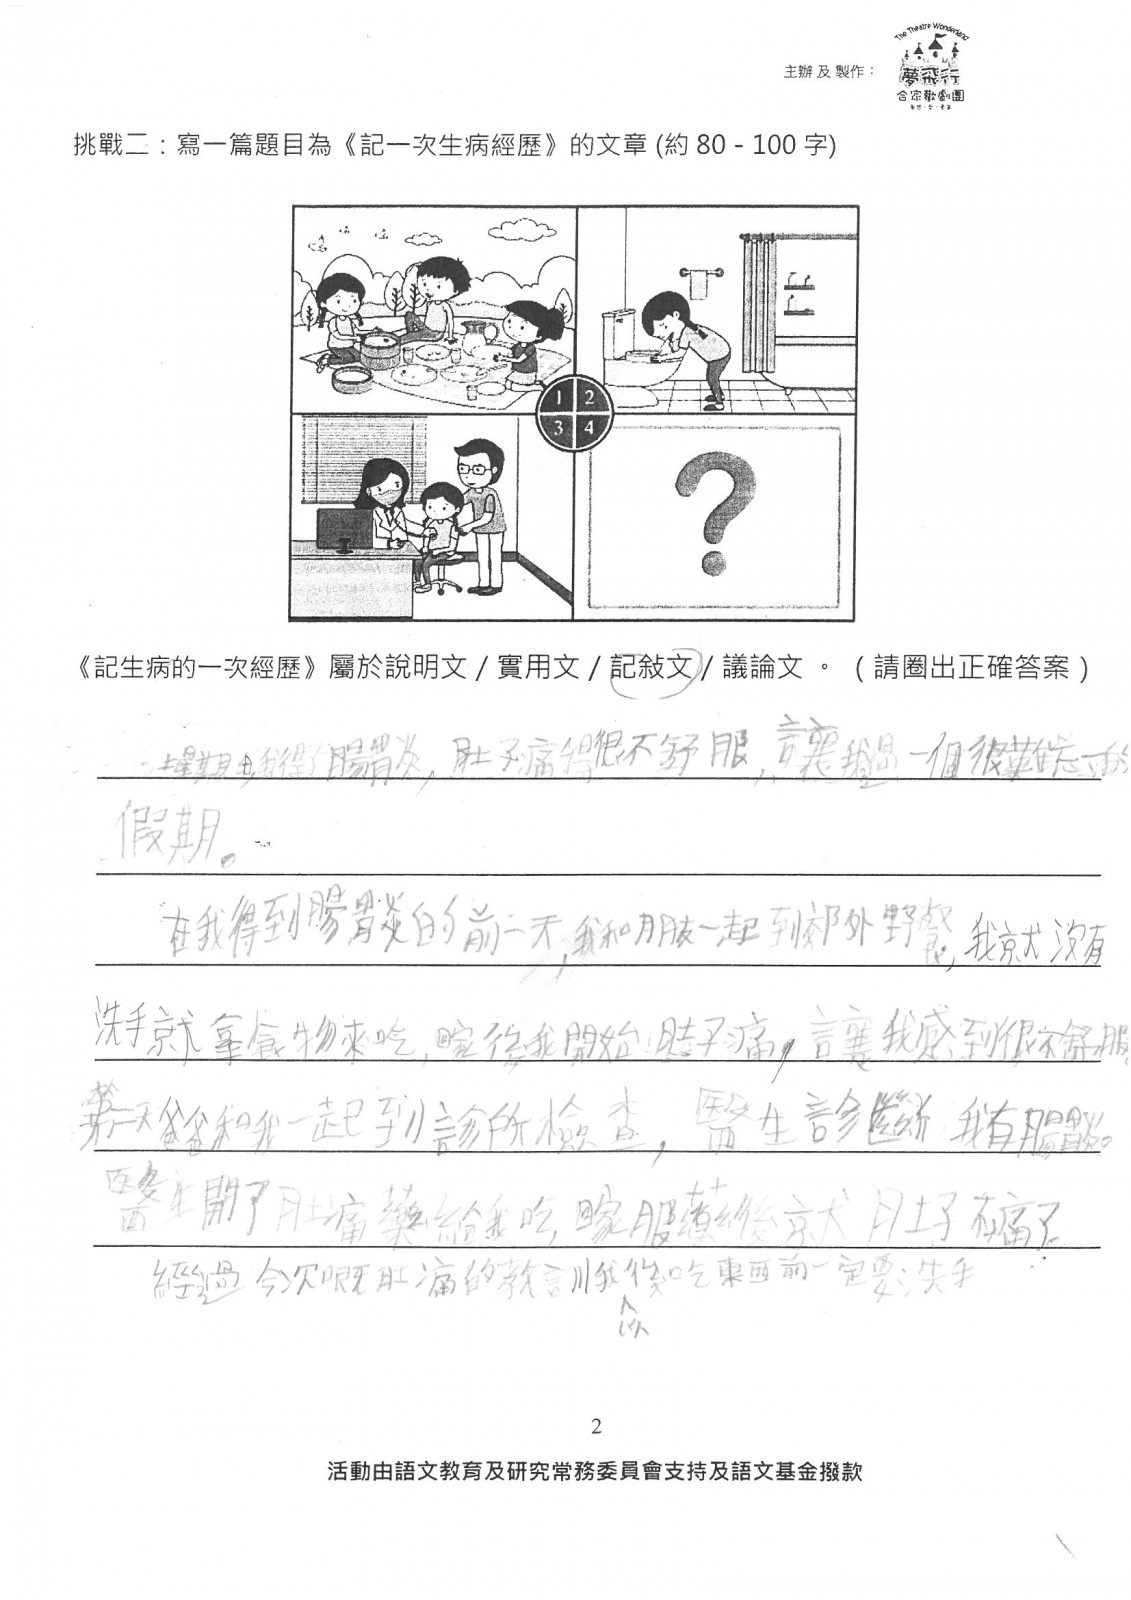 The Theatre Wonderland
主辦 及 製作：
夢飛行
合家歡劇團
挑戰二：寫一篇題目為《記一次生病經歷》的文章 (約 80 - 100 字)
1 2
3 4
?
《記生病的一次經歷》屬於說明文 / 實用文 / 記敍文 / 議論文 。 （ 請圈出正確答案 ）
腸胃炎，肚子痛得很不舒服，讓我過一個很難忘的
假期。
在我得到腸胃炎的前一天，我和朋友一起到郊外野餐，我就沒有
洗手就拿食物來吃，後我開始肚子痛，讓我感到很不舒服
第二天爸爸和我一起到診所檢查，醫生診斷我有腸胃炎。
醫生開了肚痛藥給我吃，服藥後就肚子不痛了。
經過今次嘅肚痛的教訓我以後吃東西前一定要洗手
2
活動由語文教育及研究常務委員會支持及語文基金撥款